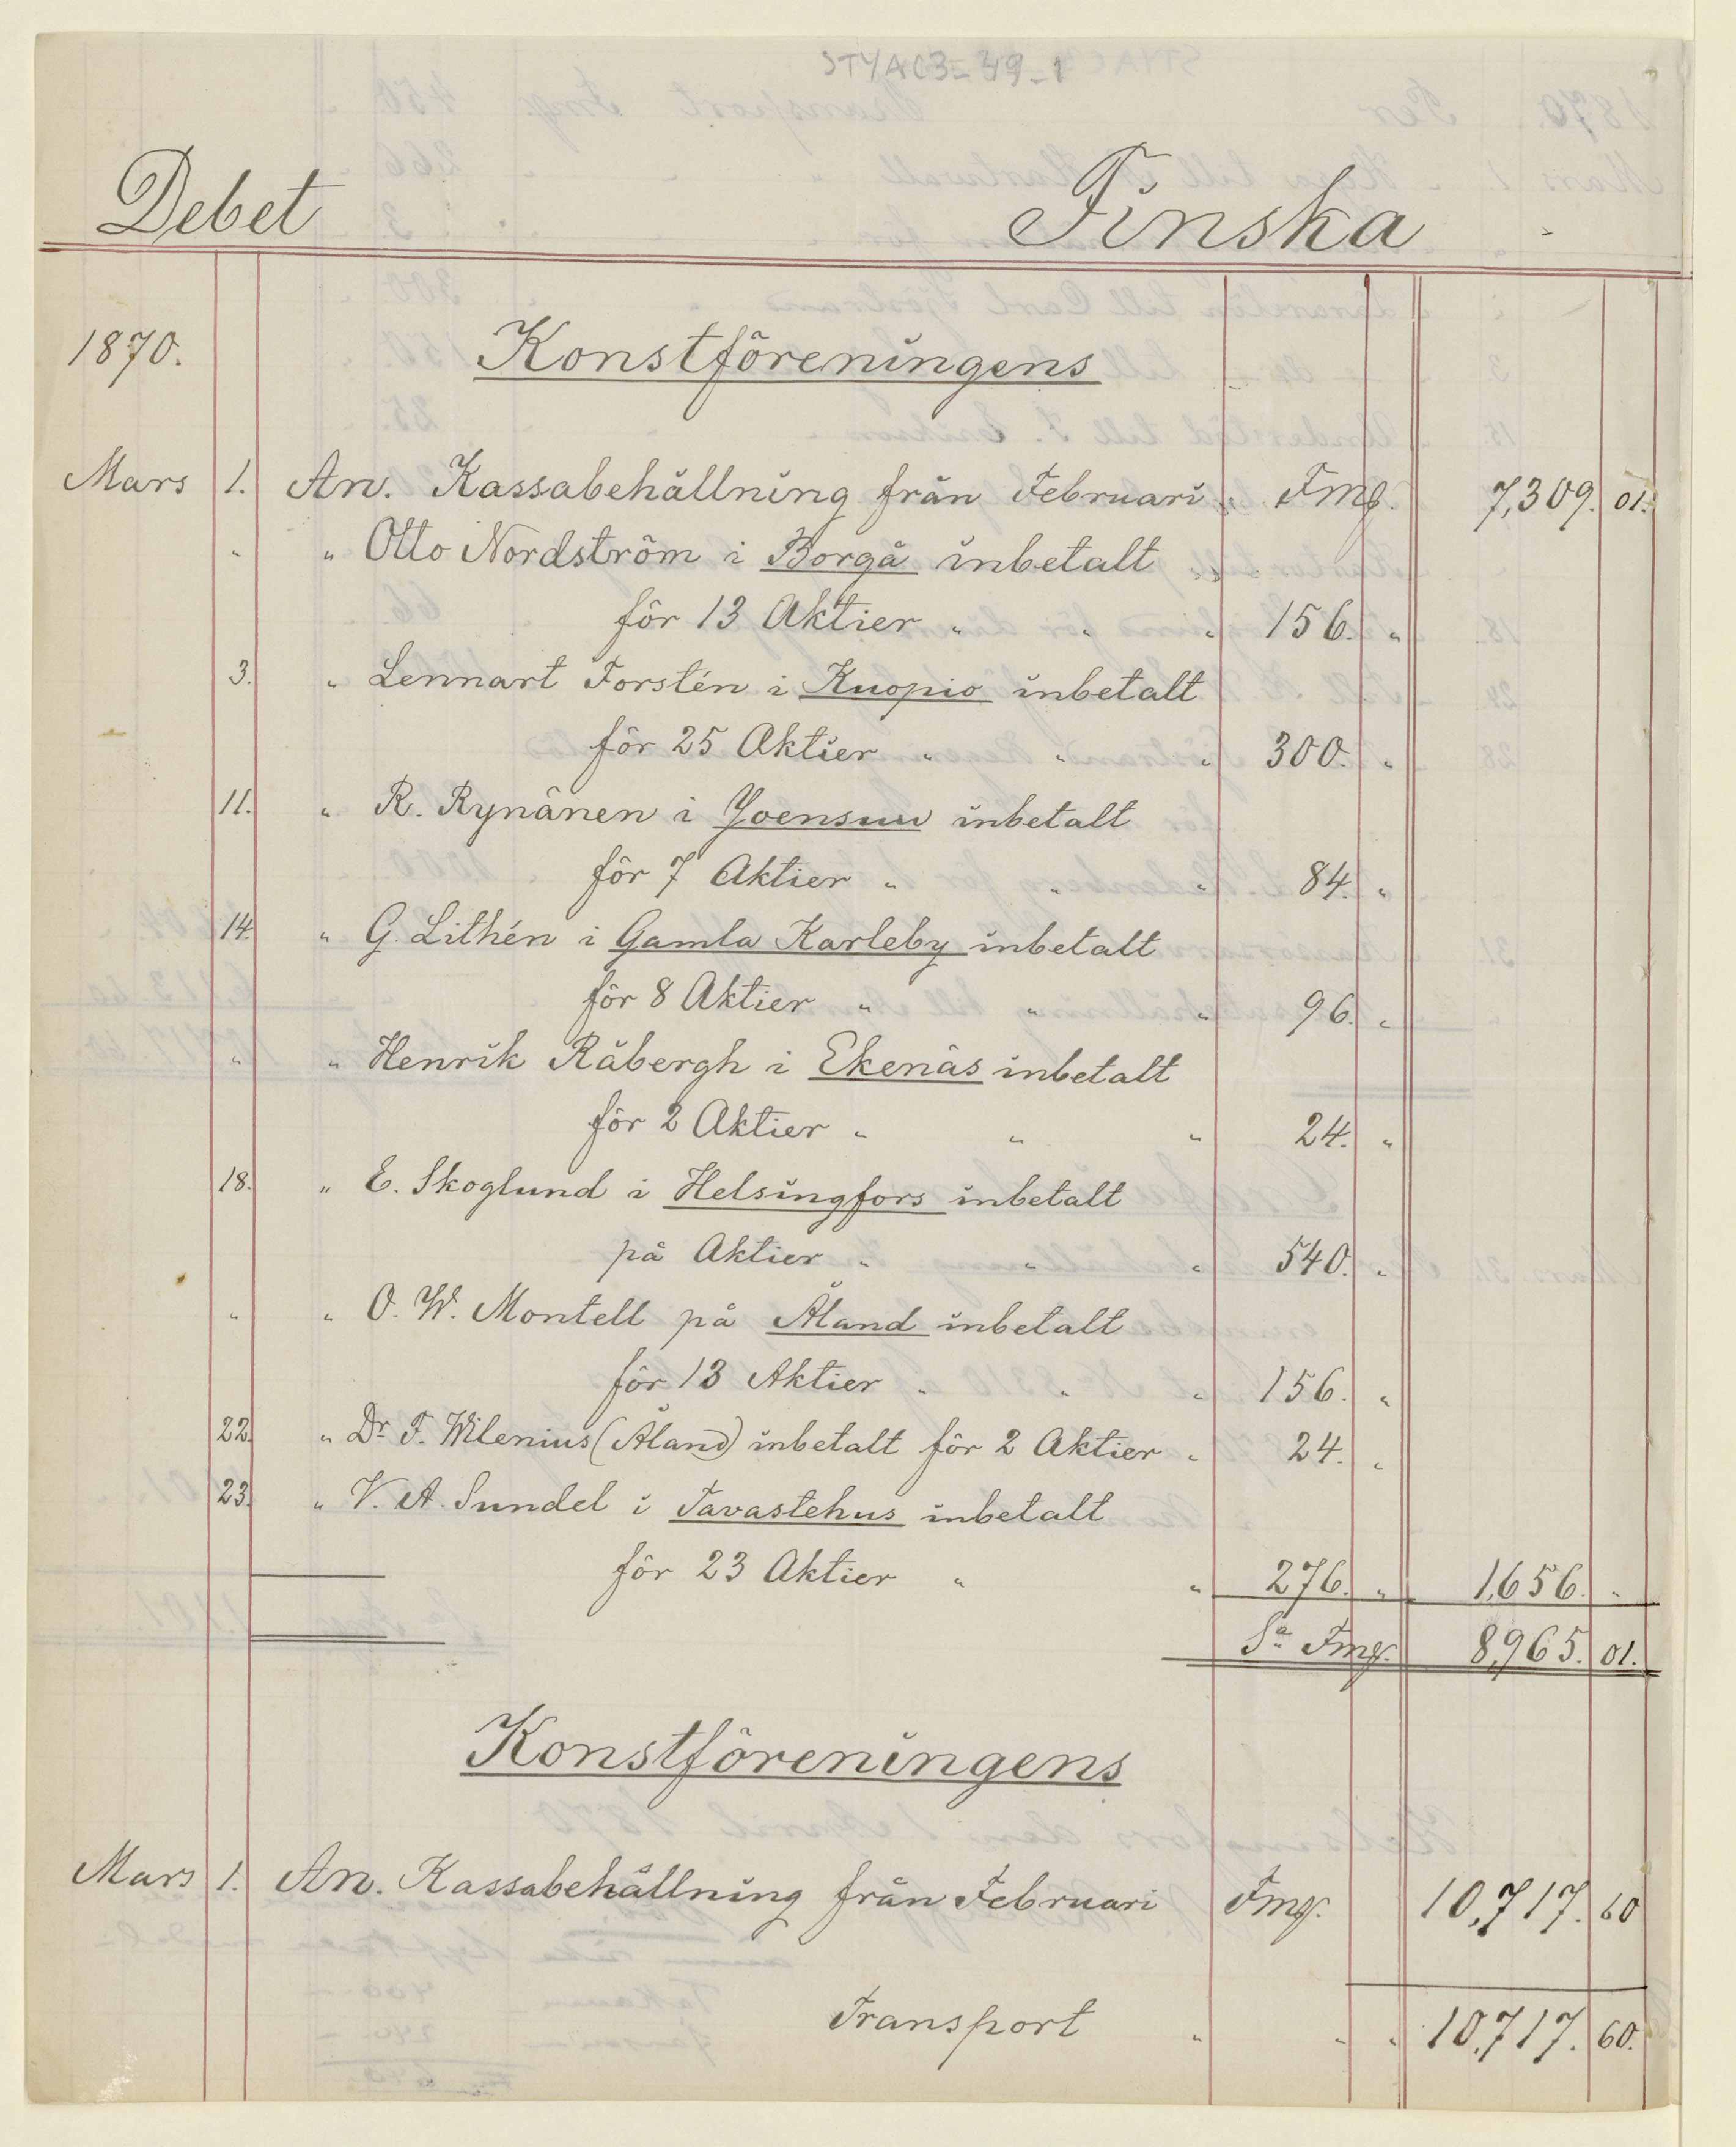 STYAC3-49-1
Debet Finska
1870. Konstföreningens
Mars 1. An. Kassabehållning från Februari " Fmg. 7,309. 01.
" " Otto Nordström i Borgå inbetalt
för 13 Aktier " " " 156. "
3. " Lennart Forstén i Kuopio inbetalt
för 25 Aktier " " " 300. "
11. " R. Rynänen i Joensuu inbetalt
för 7 Aktier " " " 84. "
14. " G. Lithén i Gamla Karleby inbetalt
för 8 Aktier " " " 96. "
" " Henrik Råbergh i Ekenäs inbetalt
för 2 Aktier " " " 24. "
18. " E. Skoglund i Helsingfors inbetalt
på Aktier " " " 540. "
" " O. W. Montell på Åland inbetalt
för 13 Aktier " " " 156. "
22. " Dr F. Wilenius (Åland) inbetalt för 2 Aktier " 24. "
23. " V. A. Sundel i Tavastehus inbetalt
för 23 Aktier " " 276. " 1,656. "
Sa Fmg. 8,965. 01.
Konstföreningens
Mars 1. An. Kassabehållning från Februari Fmg. 10,717. 60
Transport " " " 10,717. 60.